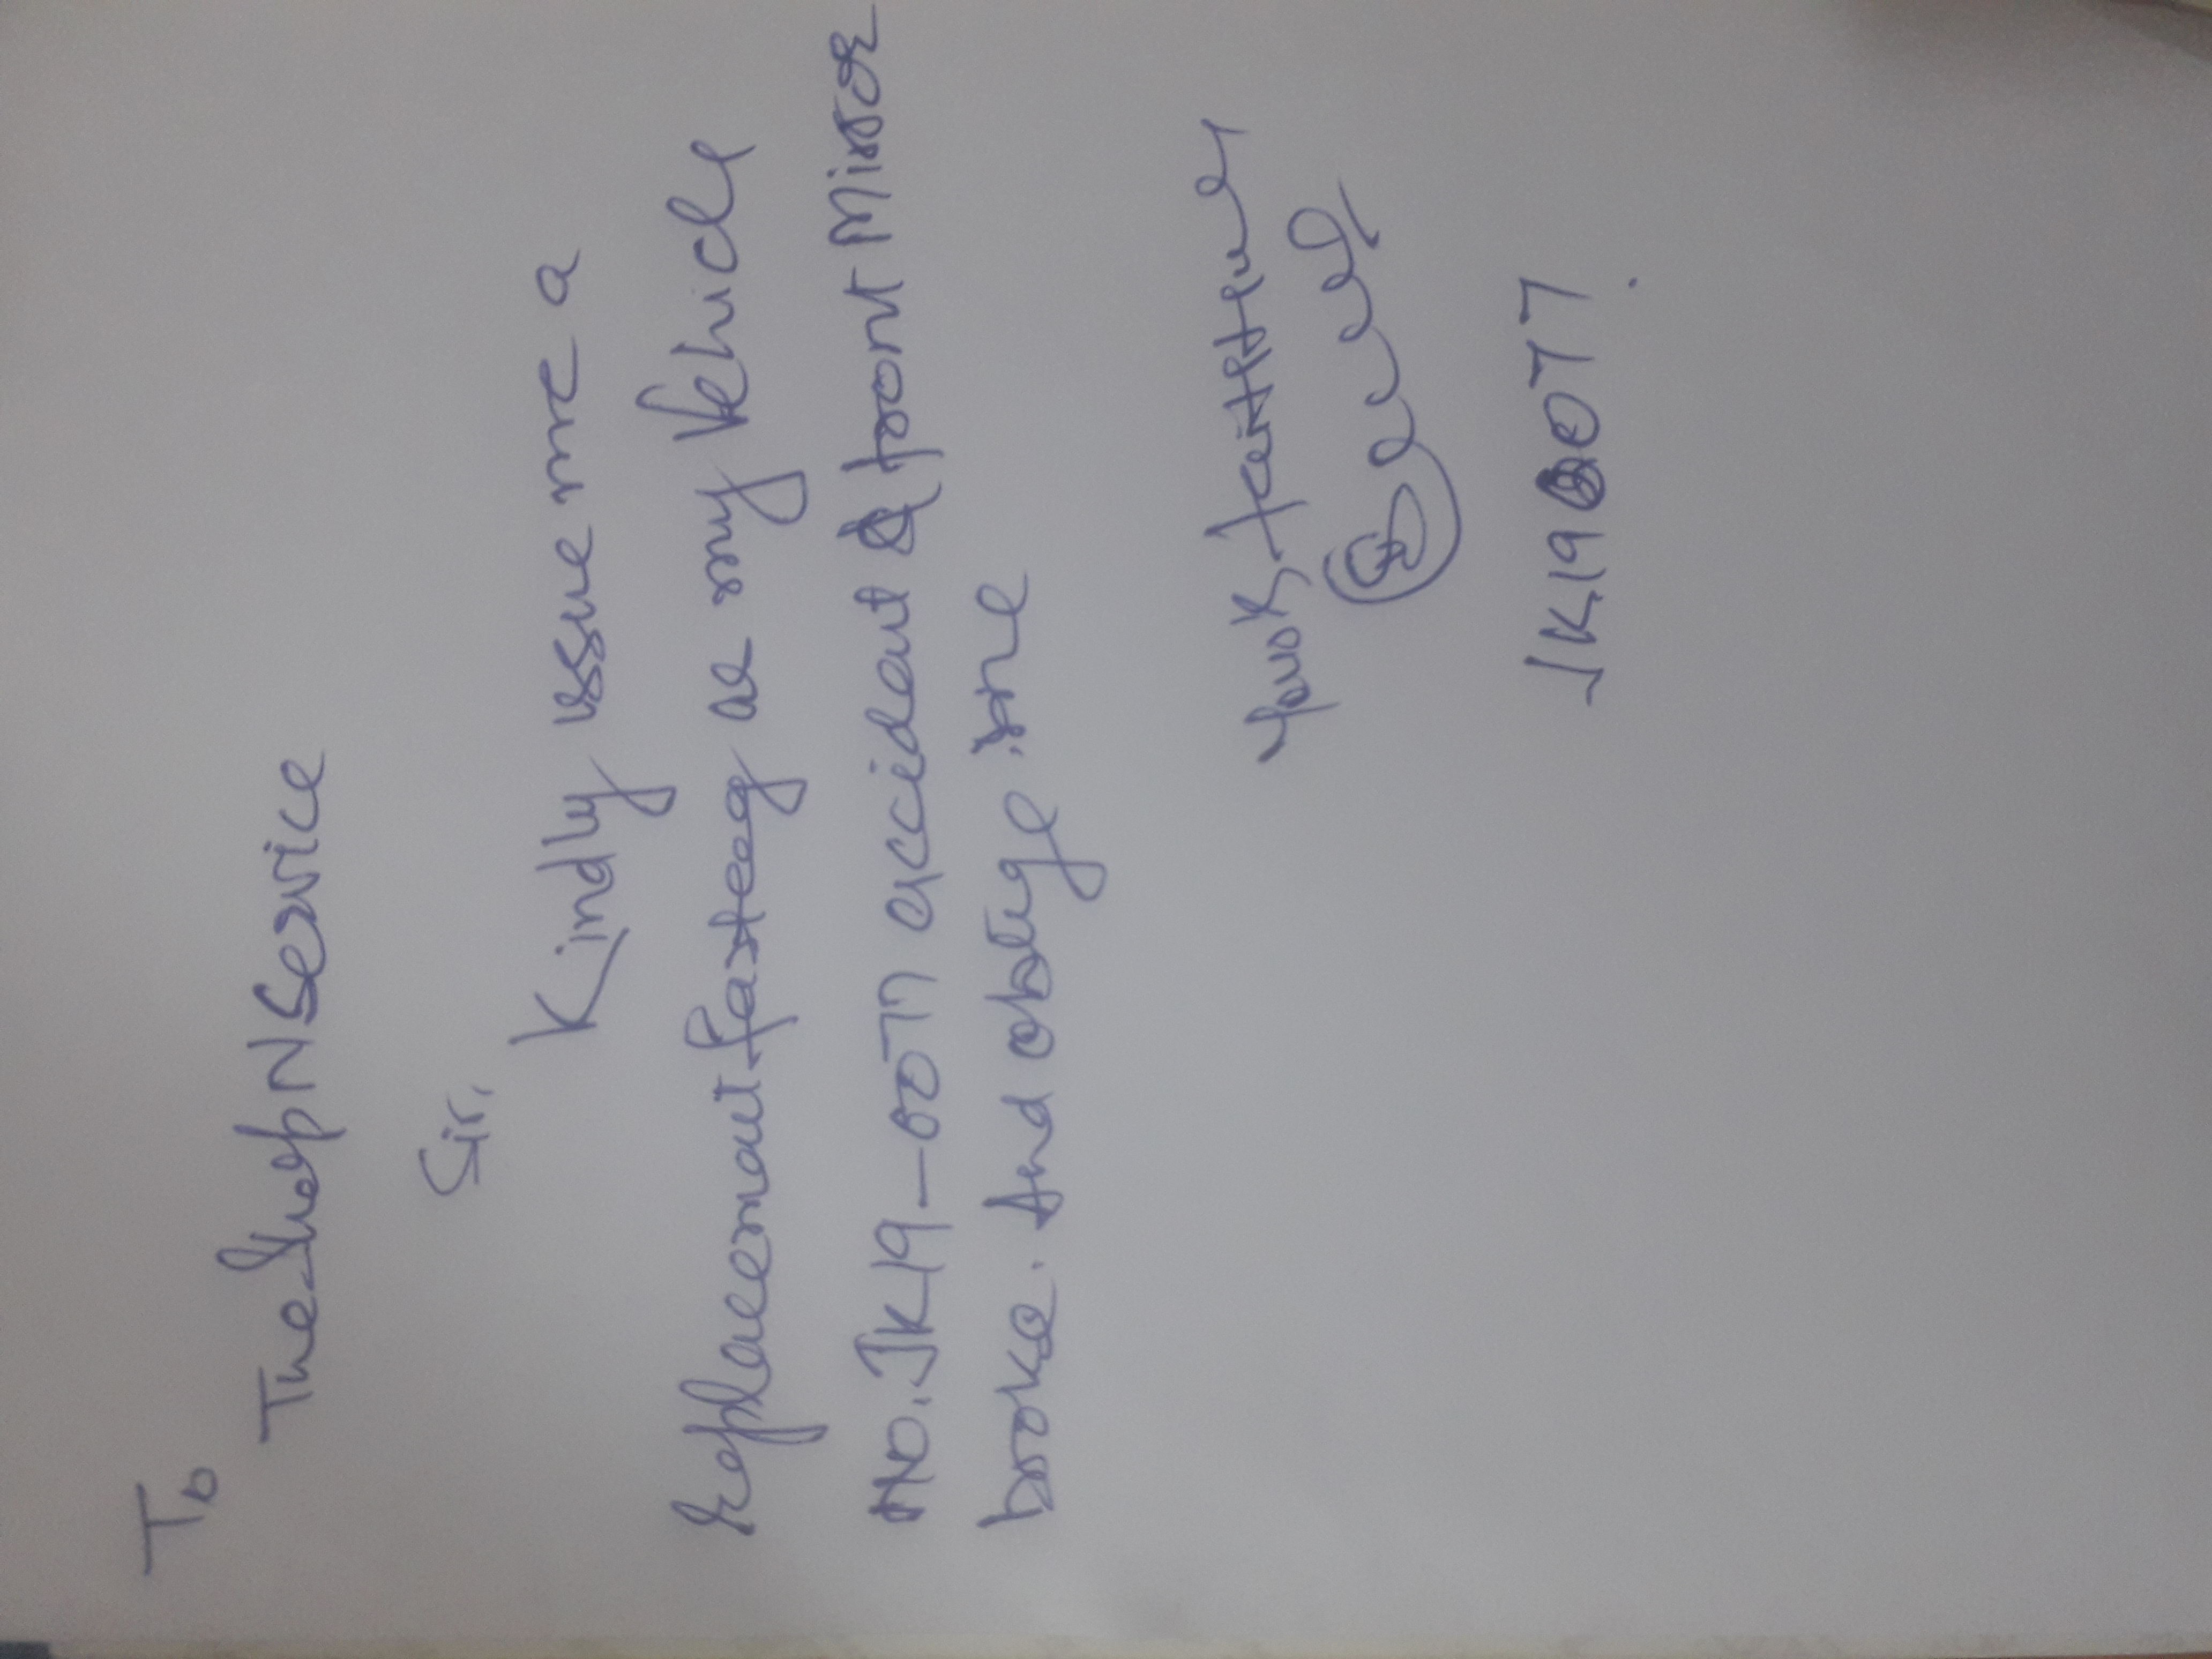 To
The Shop N Service
Sir,
Kindly issue me a
replacemant fasteeg as my Vehicle
No. JK19-0077 accident & front Mirror
broke. And oblige me
Yours faithfully
JK190077.